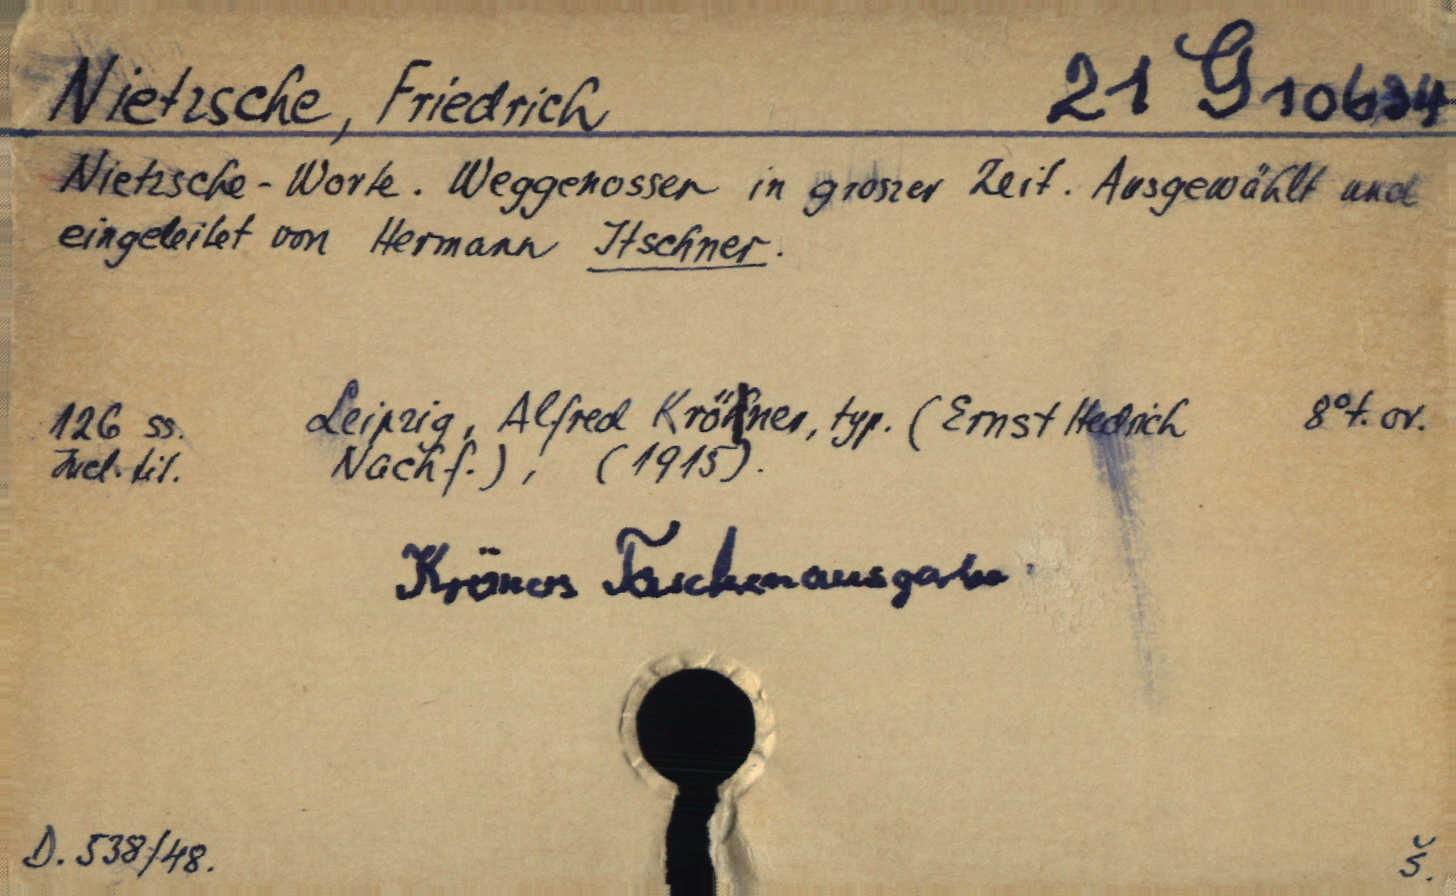 Nietzsche, Friedrich 21 G 10634
Nietzsche-Worte. Weggenossen in groszer Zeit. Ausgewählt und
eingeleitet von Hermann Itschner.
126 ss. Leipzig, Alfred Kröner, typ. (Ernst Hedrich 8°. or.
Incl. tit. Nachf.), (1915).
Kröners Taschenausgabe
D. 538/48. š.